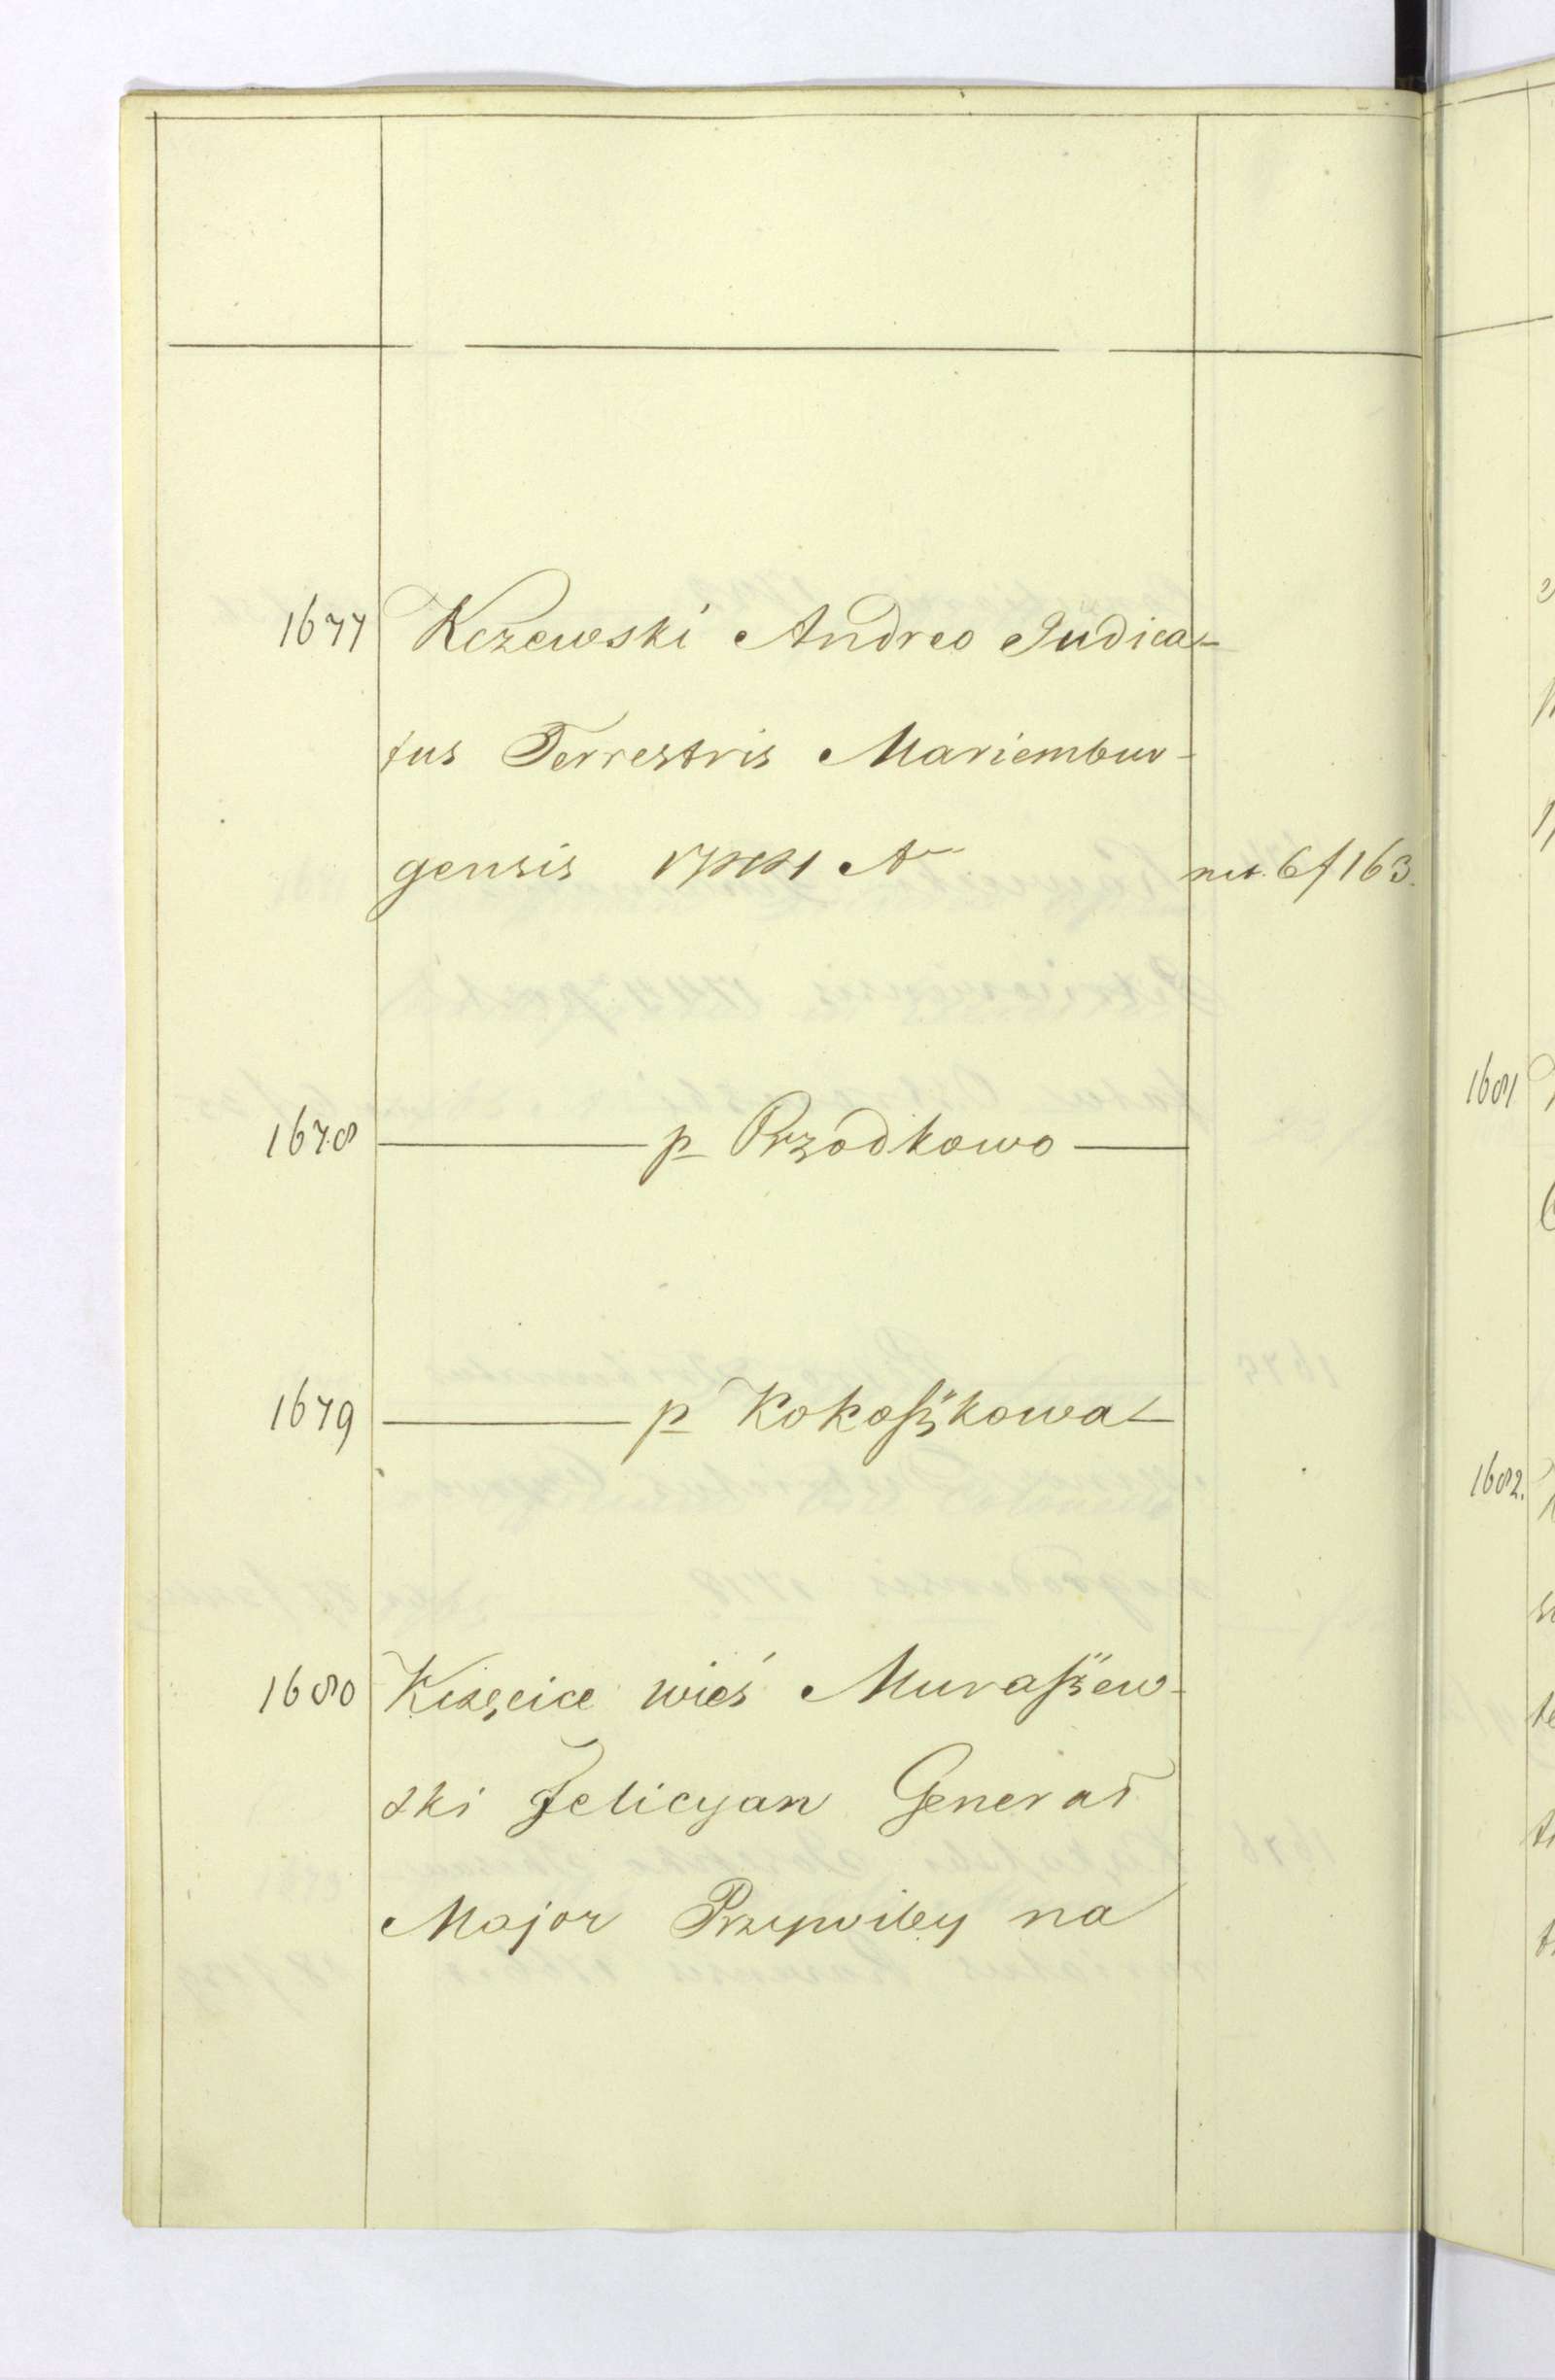 1677 Kczewski Andreo Judica-
tus Terrestris Mariembur-
gensis
6f 163.
1678 — p Przodkowo —
1679 — p Kokoszkowa —
1680 Kczęcice wieś Muraszew-
ski Felicyan Generał
Major Przywiley na
1681
1682.